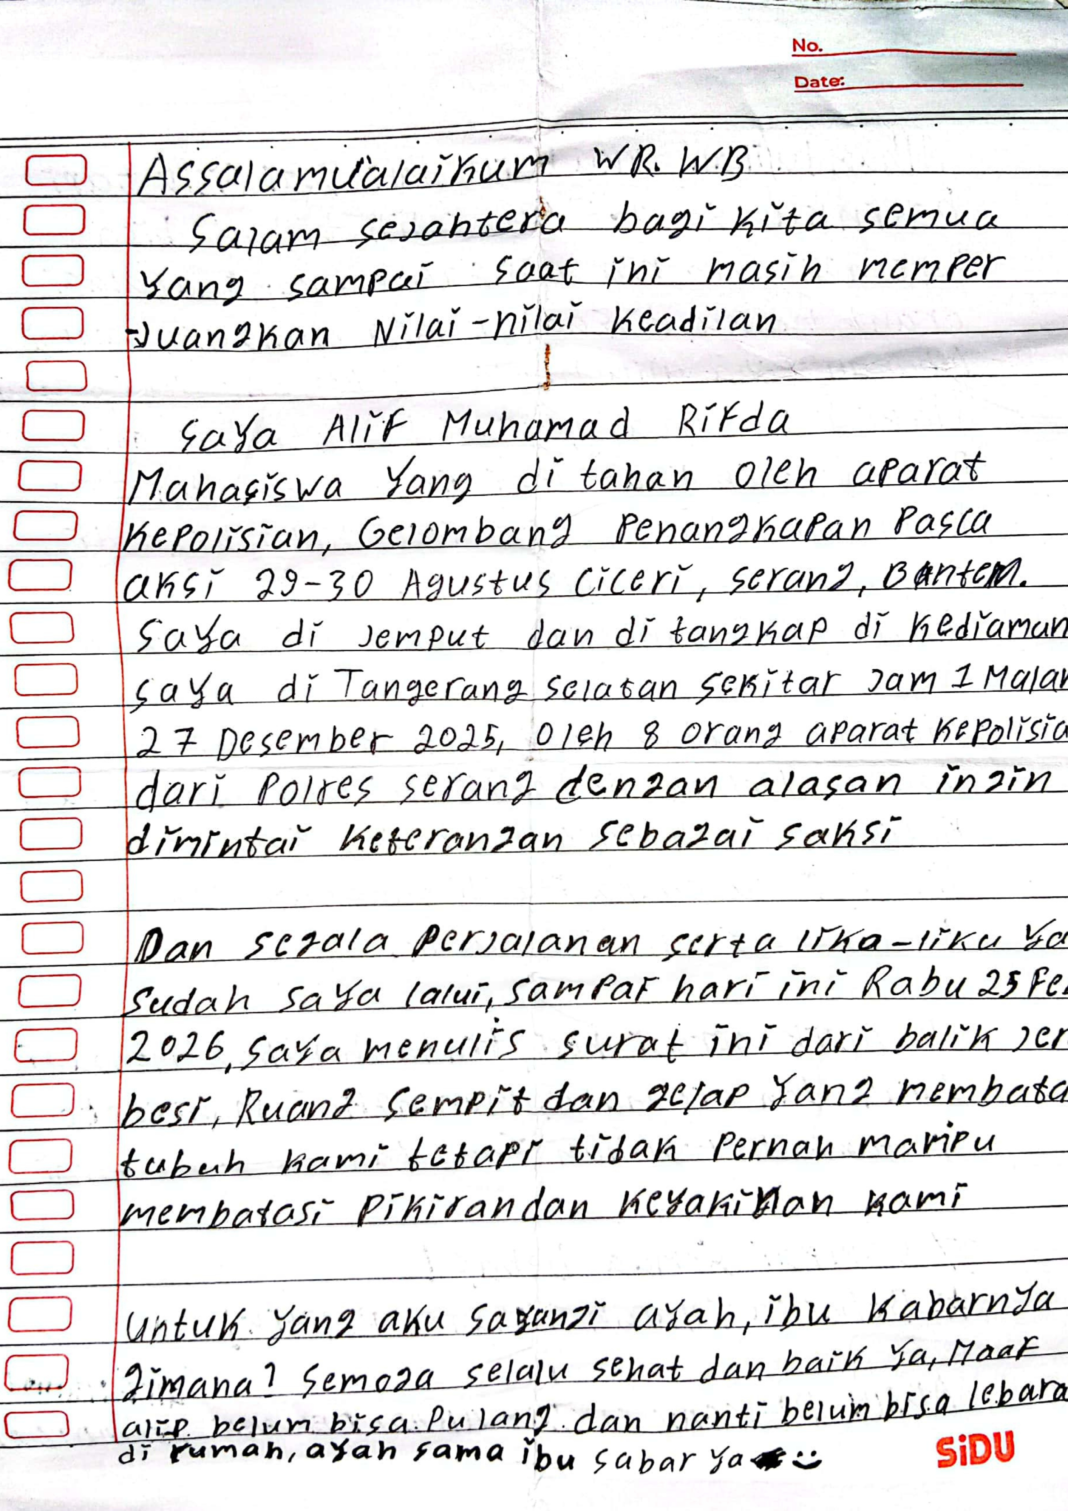 No.
Date:
Assalamu'alaikum WR. WB
Salam sejahtera bagi kita semua
yang sampai saat ini masih memper
-juangkan Nilai-nilai keadilan
saya Alif Muhamad Rifda
Mahasiswa yang di tahan oleh aparat
kepolisian, Gelombang Penangkapan Pasca
aksi 29-30 Agustus Ciceri, serang, Banten.
Saya di jemput dan di tangkap di kediaman
saya di Tangerang selatan sekitar jam 1 Malam
27 Desember 2025, oleh 8 orang aparat kepolisia
dari Polres serang dengan alasan ingin
dimintai keterangan sebagai saksi
Dan segala perjalanan serta lika-liku ya
sudah saya lalui, sampai hari ini Rabu 25 Fe
2026, saya menulis surat ini dari balik jer
besi, Ruang sempit dan gelap yang membata
tubuh kami tetapi tidak pernah mampu
membatasi pikiran dan keyakinan kami
untuk yang aku sayangi ayah, ibu kabarnya
gimana? semoga selalu sehat dan baik ya, Maaf
alip belum bisa pulang dan nanti belum bisa lebara
di rumah, ayah sama ibu sabar ya
SiDU